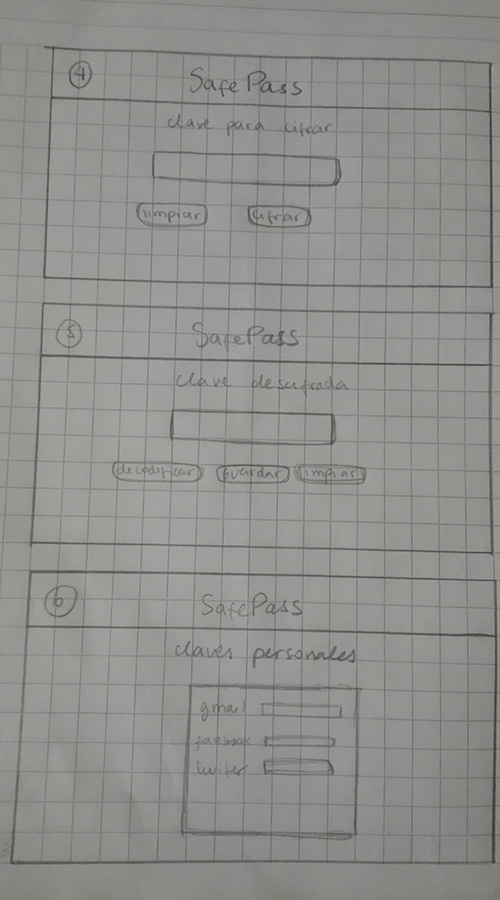 4
SafePass
clave para cifrar
limpiar cifrar
5
SafePass
clave descifrada
decodificar Guardar limpiar
6
SafePass
claves personales
gmail
facebook
twiter